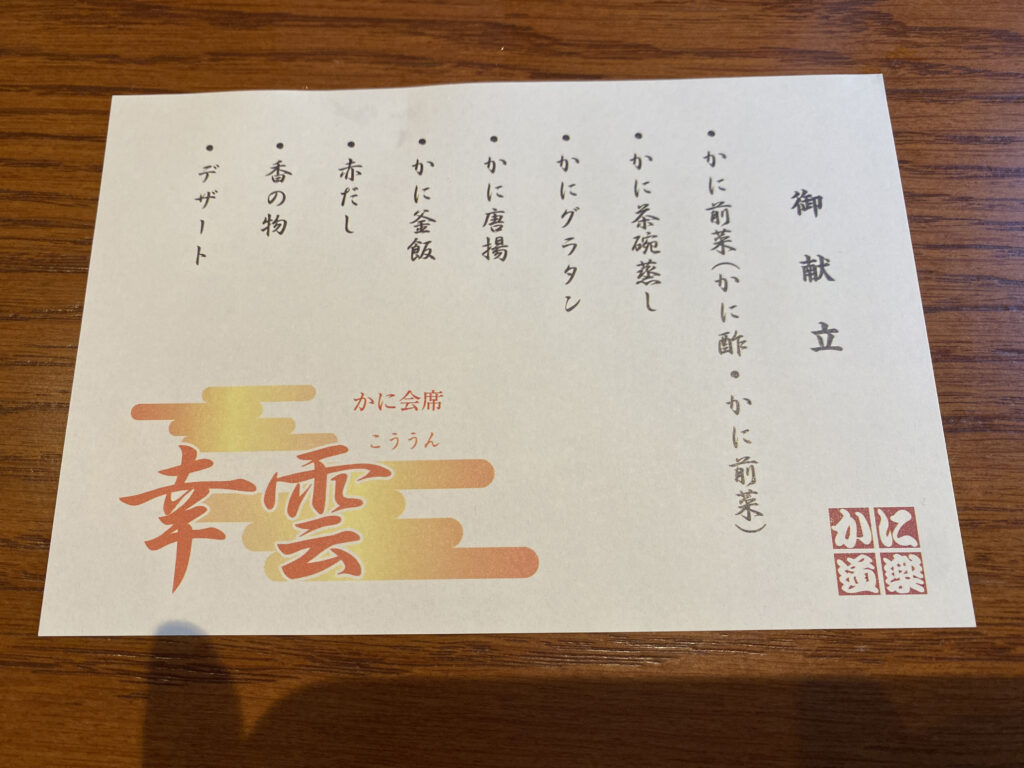 御献立
・かに前菜(かに酢・かに前菜)
・かに茶碗蒸し
・かにグラタン
・かに唐揚
・かに釜飯
・赤だし
・香の物
・デザート
かに会席
こううん
幸雲
かに
道楽